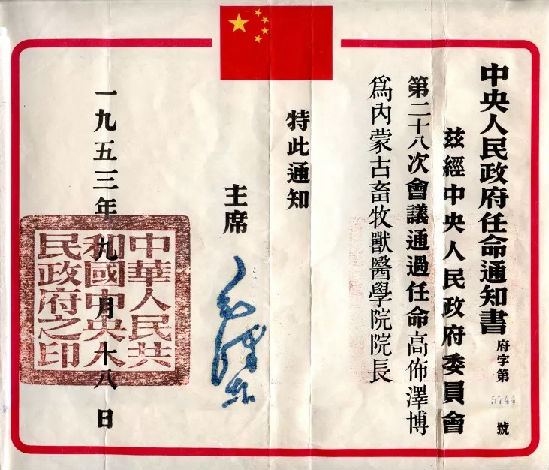 中央人民政府任命通知書
府字第 號
茲經中央人民政府委員會
第二十八次會議通過任命高佈澤博
爲內蒙古畜牧獸醫學院院長
特此通知
主席
毛澤東
一九五三年九月十八日
中華人民共
和國中央人
民政府之印